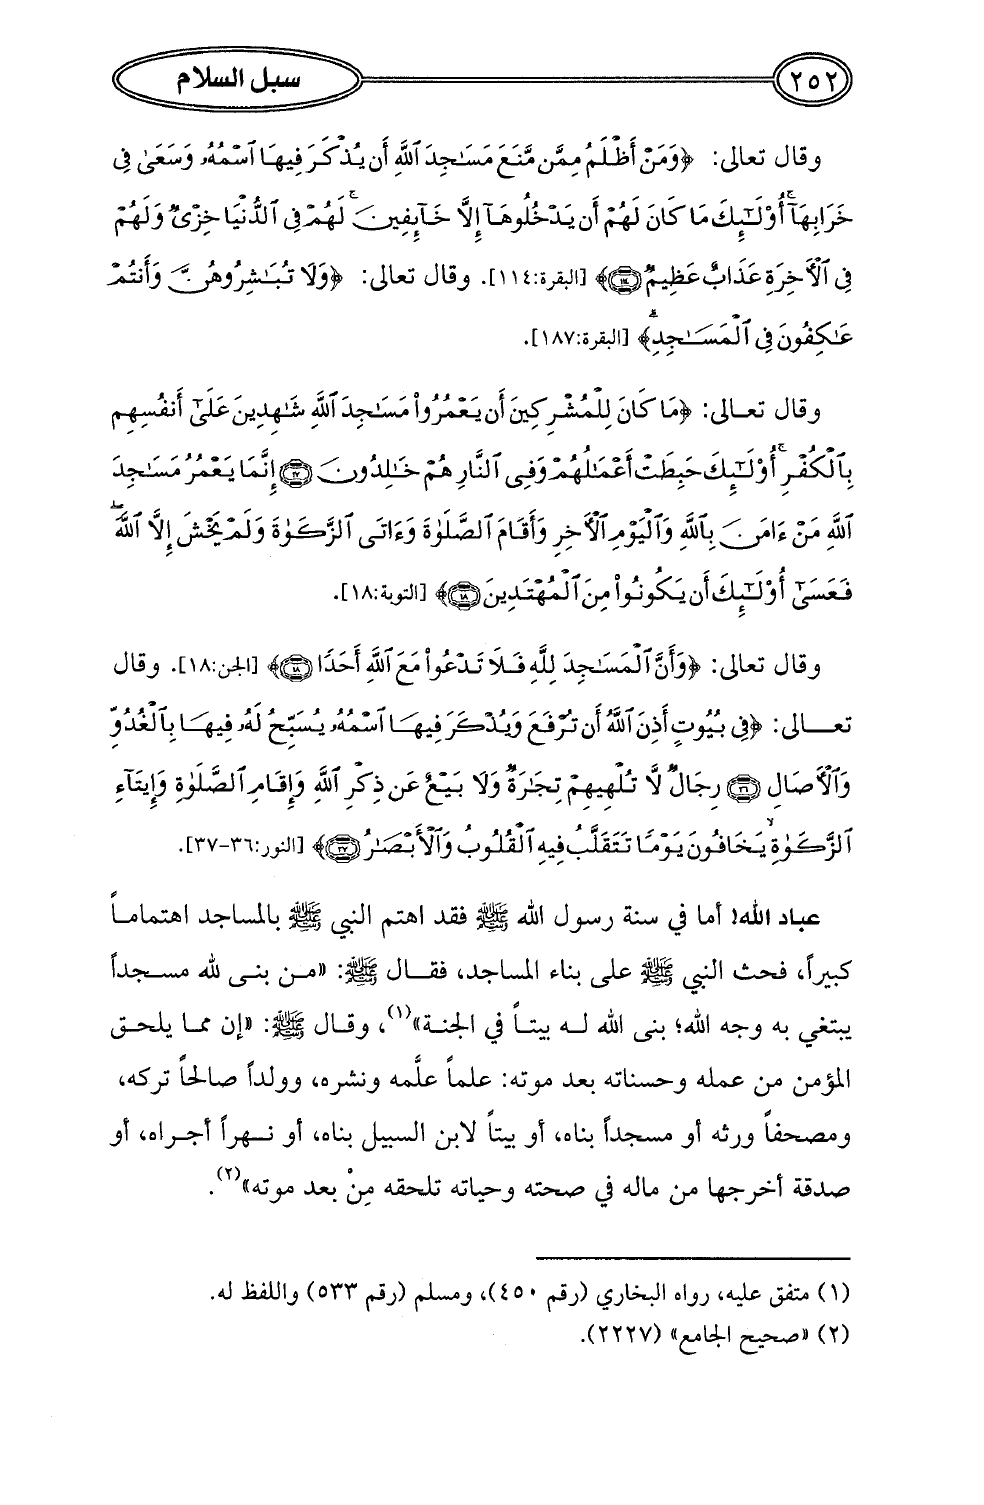 ٢٥٢ سبل السلام
وقال تعالى: ﴿وَمَنْ أَظْلَمُ مِمَّن مَّنَعَ مَسَٰجِدَ ٱللَّهِ أَن يُذْكَرَ فِيهَا ٱسْمُهُۥ وَسَعَىٰ فِى
خَرَابِهَآ ۚ أُو۟لَٰٓئِكَ مَا كَانَ لَهُمْ أَن يَدْخُلُوهَآ إِلَّا خَآئِفِينَ ۚ لَهُمْ فِى ٱلدُّنْيَا خِزْىٌ وَلَهُمْ
فِى ٱلْأَخِرَةِ عَذَابٌ عَظِيمٌ ﴿١١٤﴾﴾ [البقرة:١١٤]. وقال تعالى: ﴿وَلَا تُبَٰشِرُوهُنَّ وَأَنتُمْ
عَٰكِفُونَ فِى ٱلْمَسَٰجِدِ ۗ﴾ [البقرة:١٨٧].
وقال تعالى: ﴿مَا كَانَ لِلْمُشْرِكِينَ أَن يَعْمُرُوا۟ مَسَٰجِدَ ٱللَّهِ شَٰهِدِينَ عَلَىٰٓ أَنفُسِهِم
بِٱلْكُفْرِ ۚ أُو۟لَٰٓئِكَ حَبِطَتْ أَعْمَٰلُهُمْ وَفِى ٱلنَّارِ هُمْ خَٰلِدُونَ ﴿١٧﴾ إِنَّمَا يَعْمُرُ مَسَٰجِدَ
ٱللَّهِ مَنْ ءَامَنَ بِٱللَّهِ وَٱلْيَوْمِ ٱلْأَخِرِ وَأَقَامَ ٱلصَّلَوٰةَ وَءَاتَى ٱلزَّكَوٰةَ وَلَمْ يَخْشَ إِلَّا ٱللَّهَ ۖ
فَعَسَىٰٓ أُو۟لَٰٓئِكَ أَن يَكُونُوا۟ مِنَ ٱلْمُهْتَدِينَ ﴿١٨﴾﴾ [التوبة:١٨].
وقال تعالى: ﴿وَأَنَّ ٱلْمَسَٰجِدَ لِلَّهِ فَلَا تَدْعُوا۟ مَعَ ٱللَّهِ أَحَدًا ﴿١٨﴾﴾ [الجن:١٨]. وقال
تعالى: ﴿فِى بُيُوتٍ أَذِنَ ٱللَّهُ أَن تُرْفَعَ وَيُذْكَرَ فِيهَا ٱسْمُهُۥ يُسَبِّحُ لَهُۥ فِيهَا بِٱلْغُدُوِّ
وَٱلْأَصَالِ ﴿٣٦﴾ رِجَالٌ لَّا تُلْهِيهِمْ تِجَٰرَةٌ وَلَا بَيْعٌ عَن ذِكْرِ ٱللَّهِ وَإِقَامِ ٱلصَّلَوٰةِ وَإِيتَآءِ
ٱلزَّكَوٰةِ ۙ يَخَافُونَ يَوْمًا تَتَقَلَّبُ فِيهِ ٱلْقُلُوبُ وَٱلْأَبْصَٰرُ ﴿٣٧﴾﴾ [النور:٣٦-٣٧].
عباد الله! أما في سنة رسول الله ﷺ فقد اهتم النبي ﷺ بالمساجد اهتماماً
كبيراً، فحث النبي ﷺ على بناء المساجد، فقال ﷺ: «من بنى لله مسجداً
يبتغي به وجه الله؛ بنى الله له بيتاً في الجنة»(١)، وقال ﷺ: «إن مما يلحق
المؤمن من عمله وحسناته بعد موته: علماً علَّمه ونشره، وولداً صالحاً تركه،
ومصحفاً ورثه أو مسجداً بناه، أو بيتاً لابن السبيل بناه، أو نهراً أجراه، أو
صدقة أخرجها من ماله في صحته وحياته تلحقه مِنْ بعد موته»(٢).
(١) متفق عليه، رواه البخاري (رقم ٤٥٠)، ومسلم (رقم ٥٣٣) واللفظ له.
(٢) «صحيح الجامع» (٢٢٢٧).